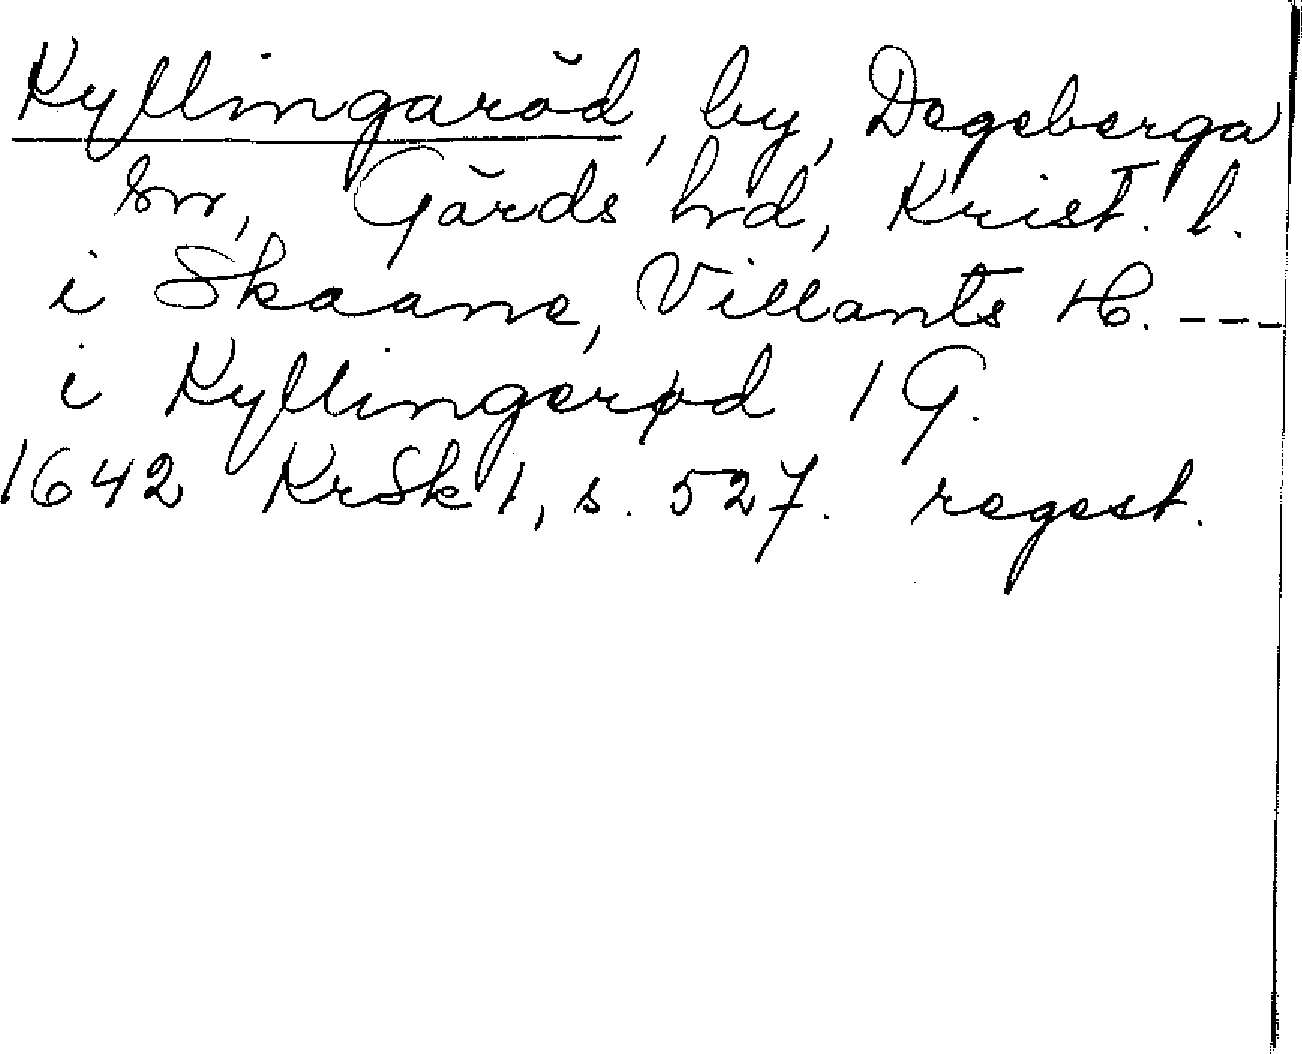 Kyllingaröd, by, Degeberga
sn, Gärds hrd, Krist. l.
i Skaane, Villants H. ---
i Kyllingerød 1 G.
1642 KrSk 1, s. 527. regest.